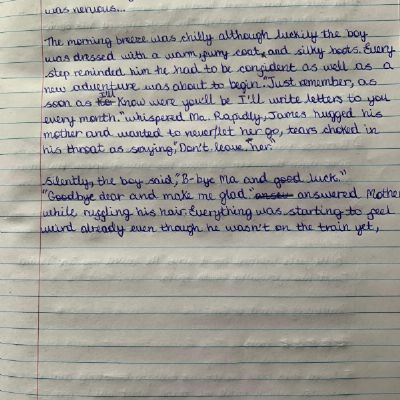 was nervous...
The morning breeze was chilly although luckily the boy
was dressed with a warm, puffy coat, and silky boots. Every
step reminded him he had to be confident as well as a
new adventure was about to begin. "Just remember, as
soon as I'll know were you'll be I'll write letters to you
every month." whispered Ma. Rapidly, James hugged his
mother and wanted to never let her go, tears choked in
his throat as saying, "Don't leave her."
Silently, the boy said, "B-bye Ma and good luck."
"Goodbye dear and make me glad." answered Mother
while ruggling his hair. Everything was starting to feel
weird already even though he wasn't on the train yet,